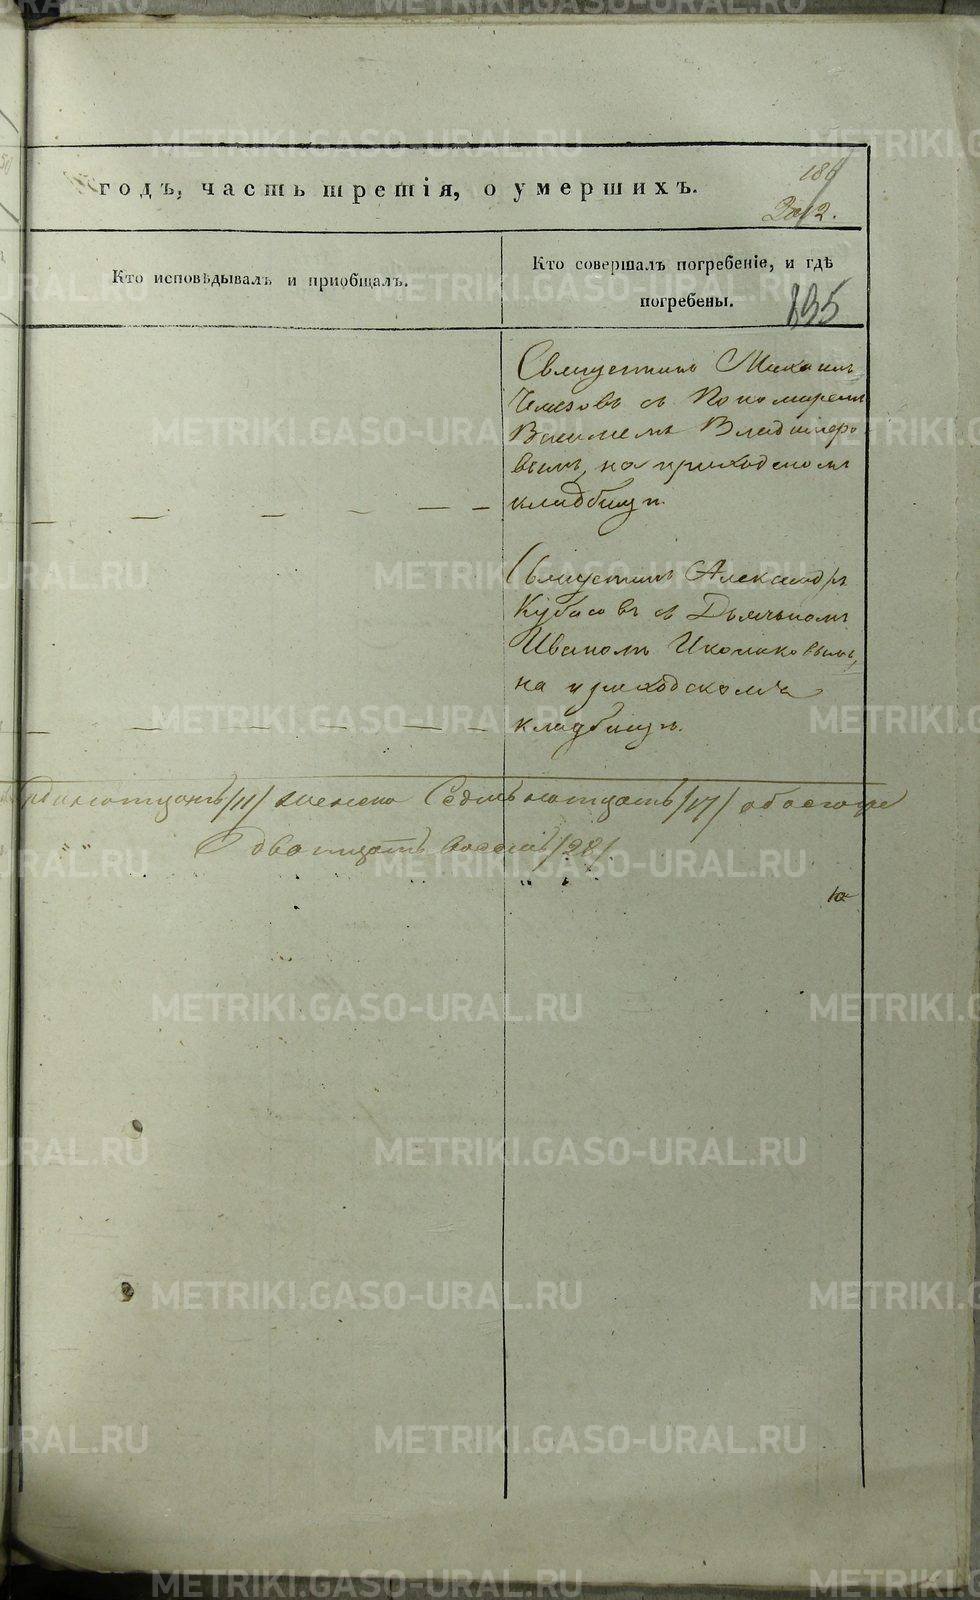 годъ, часть третія, о умершихъ.
186
212.
Кто исповѣдывалъ и пріобщалъ.
Кто совершалъ погребеніе, и гдѣ
погребены.
195
Священникъ Михаилъ
Чемезовъ съ Пономаремъ
Василіемъ Владиміро-
вымъ, на приходскомъ
кладбищѣ.
Священникъ Александръ
Кубасовъ съ Дьячкомъ
Иваномъ Иконниковымъ,
на приходскомъ
кладбищѣ.
одиннатцать /11/ женска Седмьнатцать /17/ обоего
двадцать восемь /28/.
METRIKI.GASO-URAL.RU